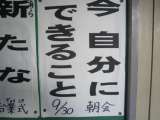 今 自分に
できること
9/30 朝会
新たな
始業式